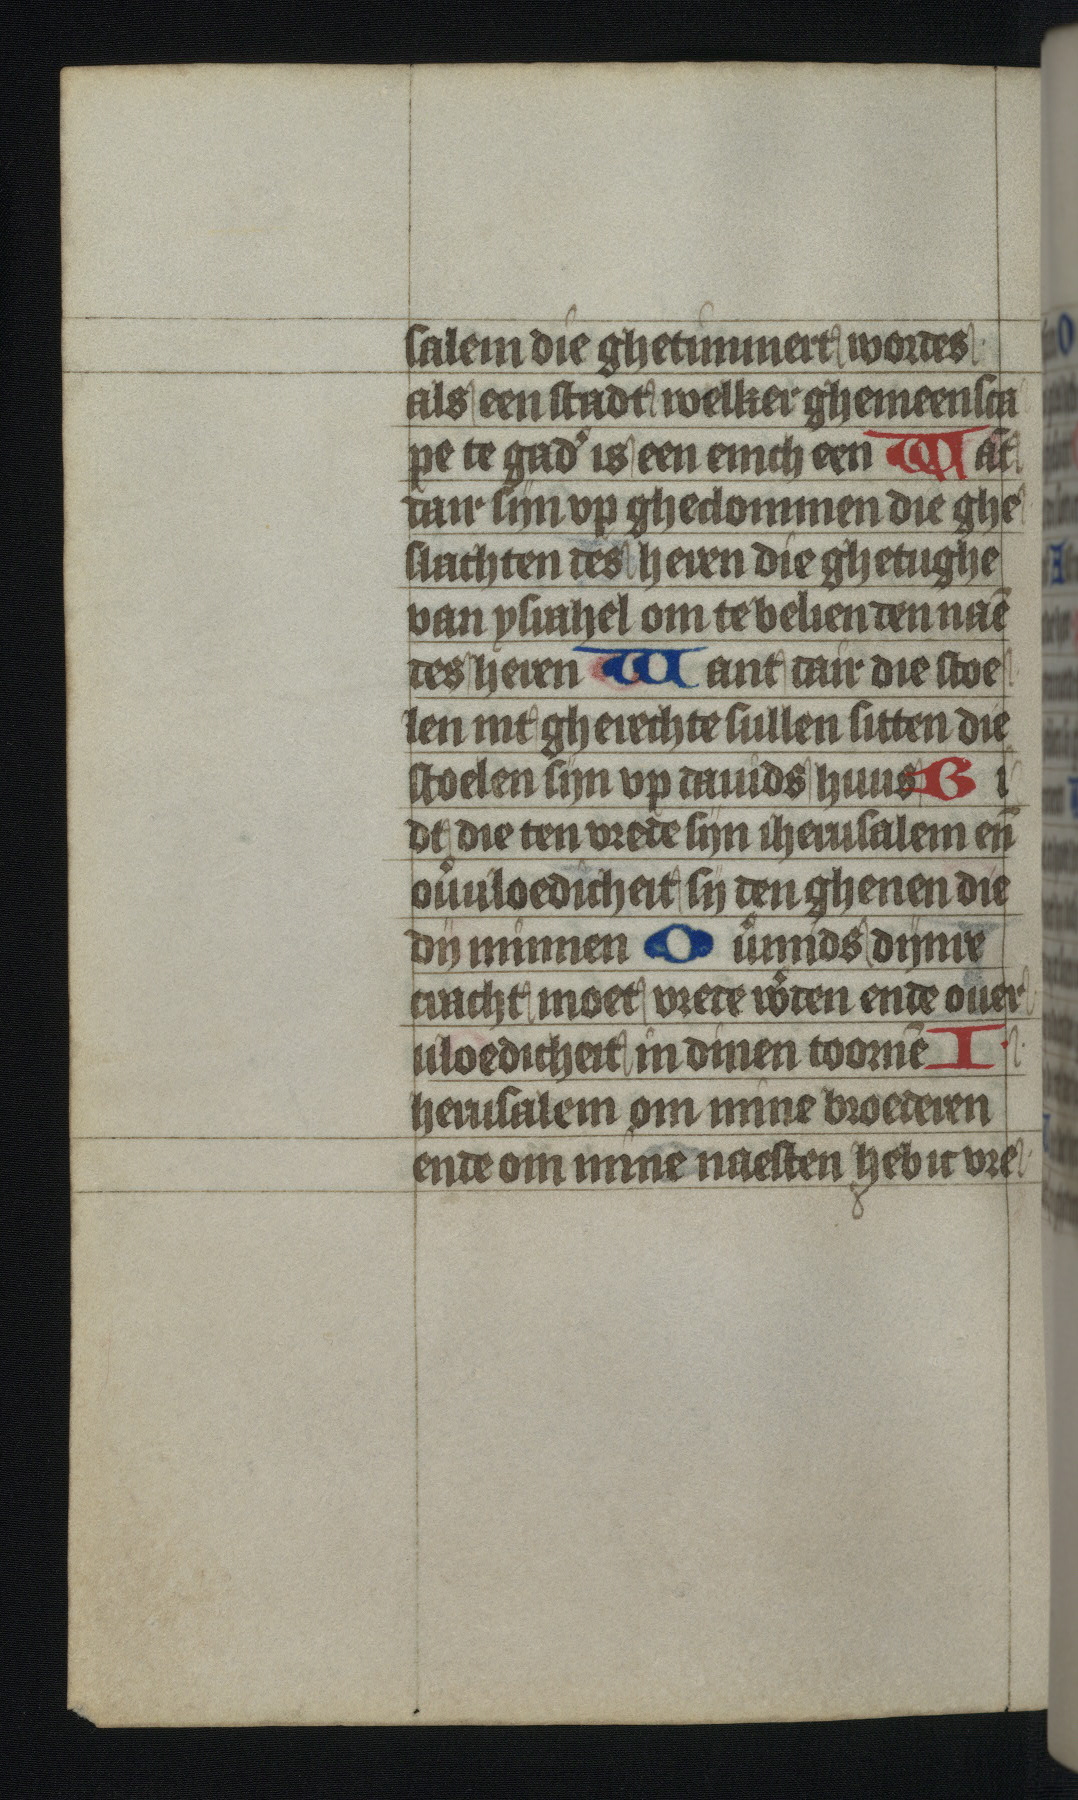 salem die ghetimmert wordes
als een stadt welker ghemeensca
pe te gad' is een einich een Wāt
dair sijn vp gheclommen die ghe
slachten des heren die ghetughe
van ysrahel om te belien den naē
des heren Want dair die stoe
len mt gherechte sullen sitten die
stoelen sijn vp dauids huus Bi
dt die ten vrede sijn iherusalem eñ
ou'uloedicheit sij den ghenen die
dij minnen Ou'mids dijnre
cracht moet vrede w'den ende ouer
uloedicheit in dinen toornē I
herusalem om mine broederen
ende om mine naesten heb ic vre